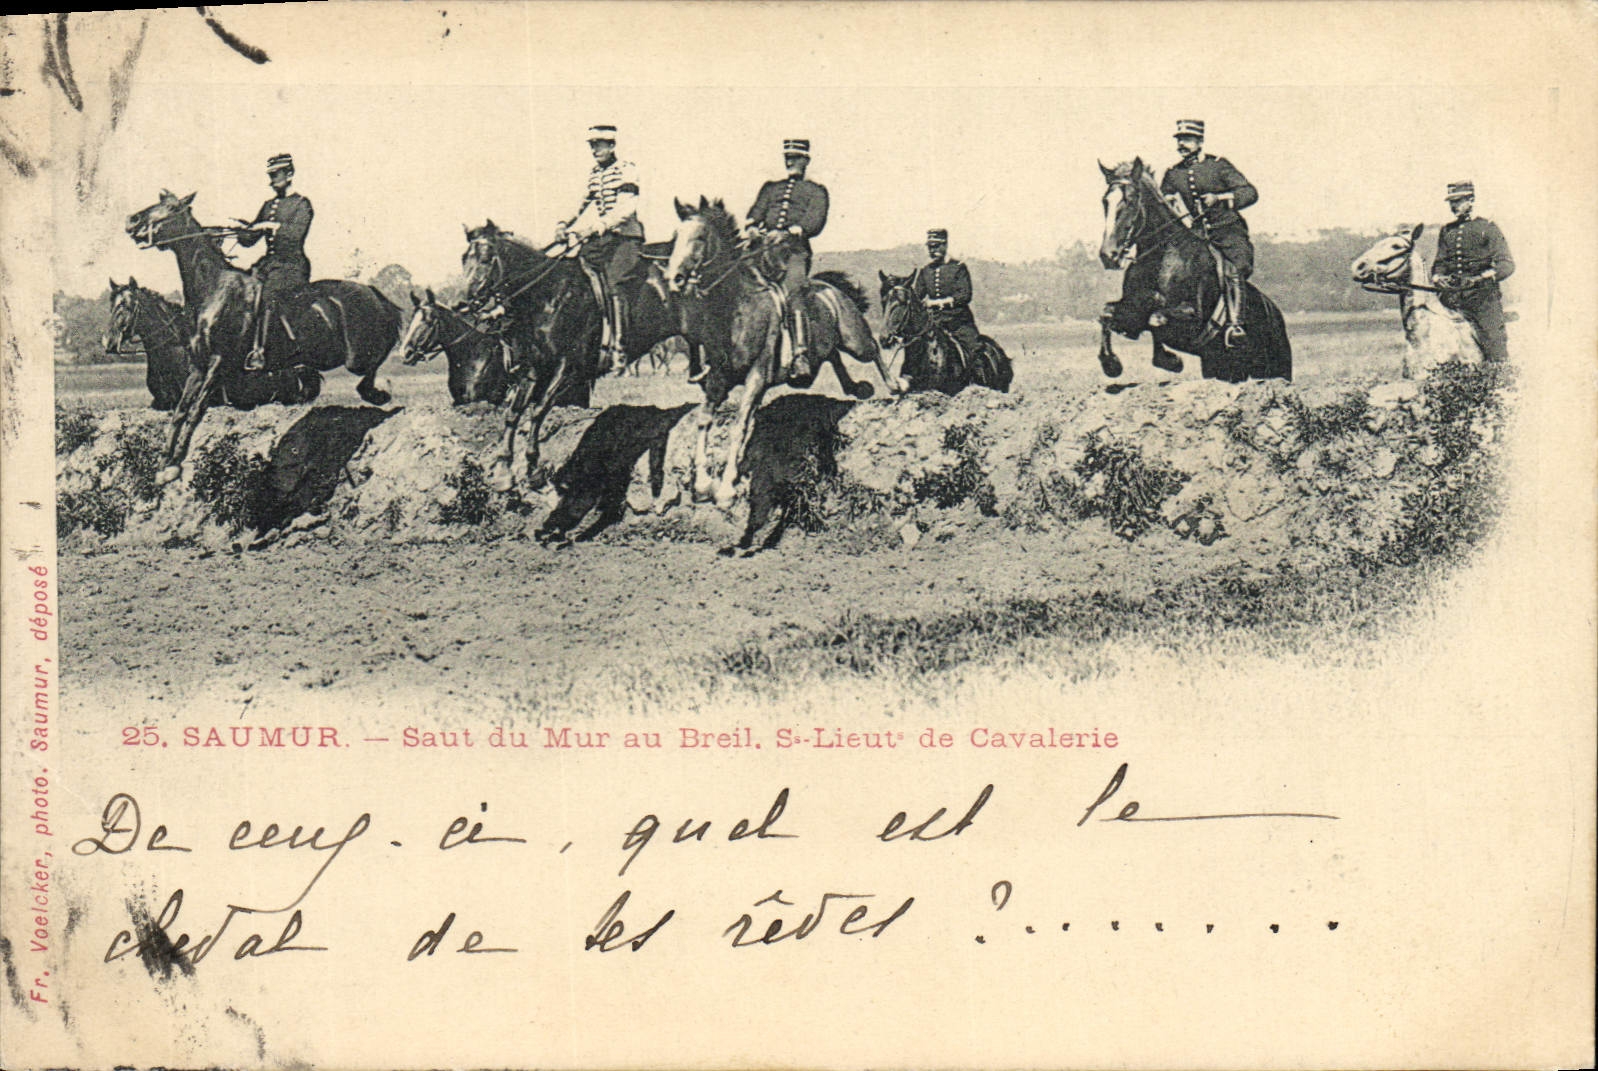 25. SAUMUR. — Saut du Mur au Breil. Ss-Lieuts de Cavalerie
De ceux-ci, quel est le
cheval de tes rêves ?........
Fr. Voelcker, photo. Saumur, déposé